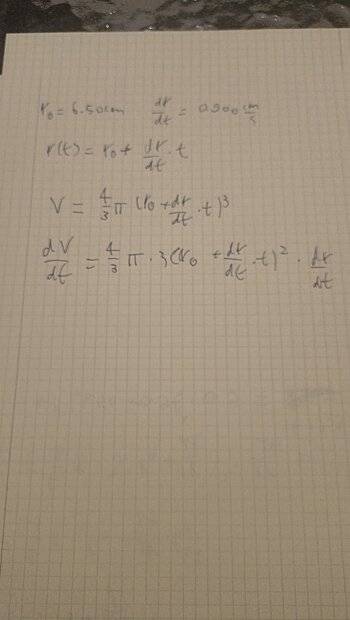 r₀ = 6.50cm dr/dt = 0.900 cm/s
r(t) = r₀ + dr/dt · t
V = 4/3 π (r₀ + dr/dt · t)³
dV/dt = 4/3 π · 3(r₀ + dr/dt · t)² · dr/dt